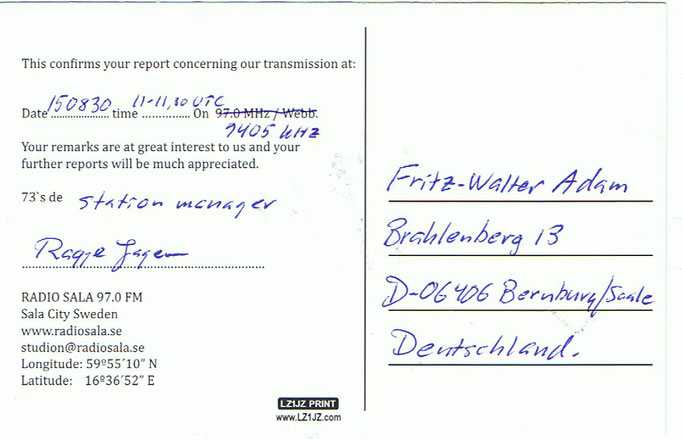 This confirms your report concerning our transmission at:
Date 150830 time 11-11,30 UTC On 97.0 MHz / Webb.
9405 kHz
Your remarks are at great interest to us and your
further reports will be much appreciated.
73`s de station manager
RADIO SALA 97.0 FM
Sala City Sweden
www.radiosala.se
studion@radiosala.se
Longitude: 59º55´10” N
Latitude: 16º36´52” E
LZ1JZ PRINT
www.LZ1JZ.com
Fritz-Walter Adam
Brahlenberg 13
D-06406 Bernburg/Saale
Deutschland.